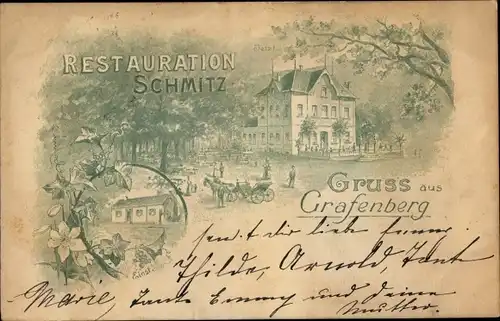 RESTAURATION
SCHMITZ
Jetzt.
Gruss aus
Grafenberg
Einst.
liebe
Thilde, Arnold, Tante
Marie, Tante Emmy und Deine
Mutter.